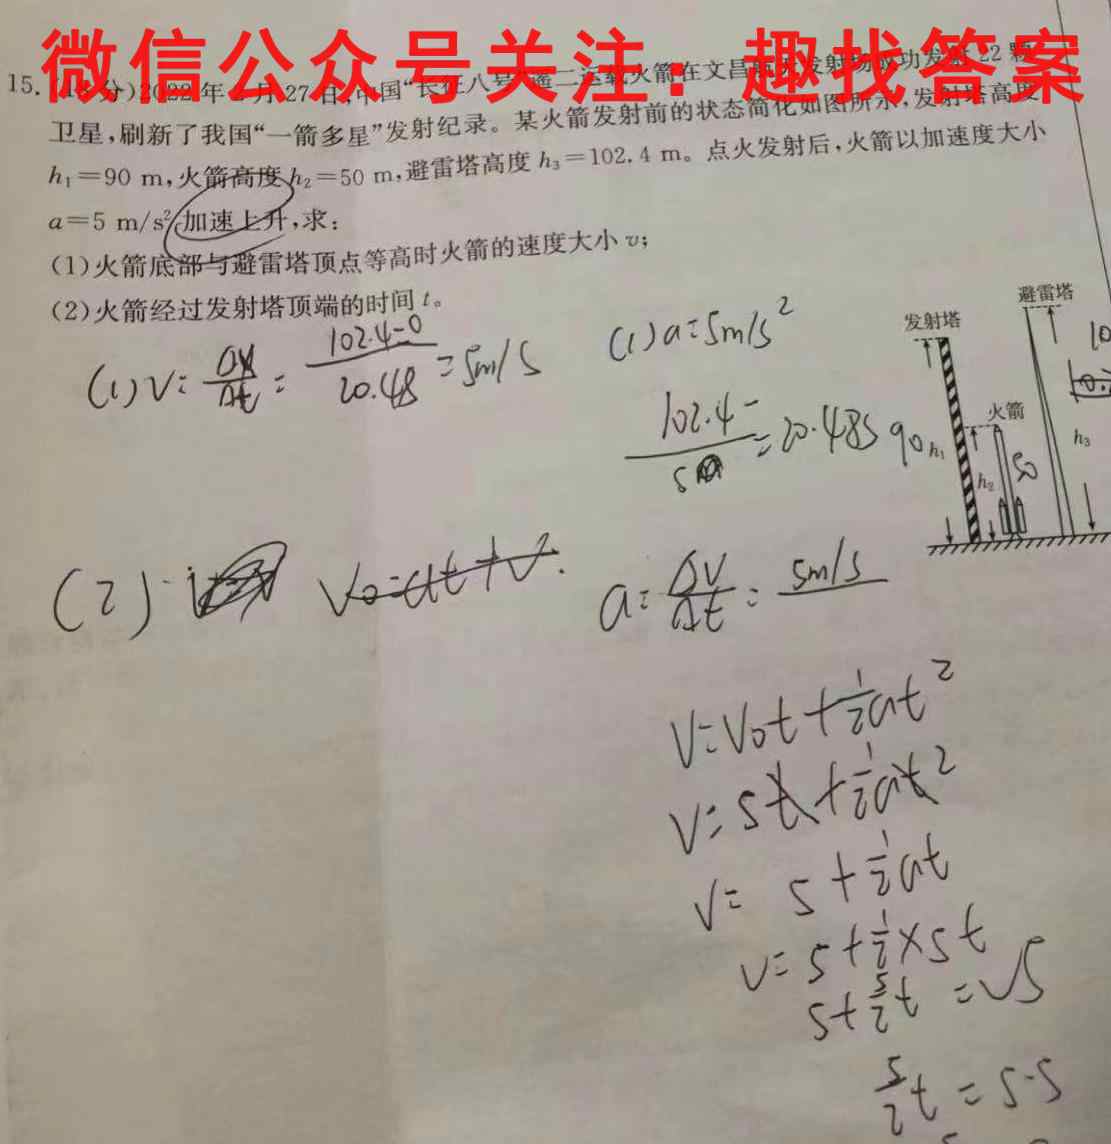 微信公众号关注：趣找答案
15.
分)2022年 月27日,中国“长征八号”遥二运载火箭在文昌 发射场成功发射22颗
卫星,刷新了我国“一箭多星”发射纪录。某火箭发射前的状态简化如图所示,发射塔高度
h₁=90 m,火箭高度h₂=50 m,避雷塔高度 h₃=102.4 m。点火发射后,火箭以加速度大小
a=5 m/s²加速上升,求:
(1)火箭底部与避雷塔顶点等高时火箭的速度大小 v;
(2)火箭经过发射塔顶端的时间 t。
避雷塔
发射塔
火箭
h₁
h₂
h₃
90
50
(1) V= Δx/Δt = 102.4-0/20.48 =5m/s
(1) a=5m/s²
102.4-/5 =20.48s
(2)
V₀=at+V.
a= ΔV/Δt = 5m/s
V=V₀t+½at²
V=5t+½at²
V= 5+½at
V=5+½×5t
5+5/2t =√5
5/2t =5.5